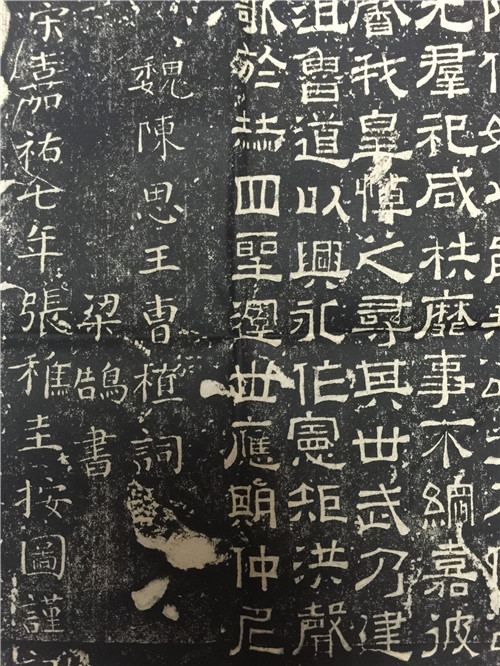 羣祀咸秩靡事不綱嘉彼
膺我皇悼之尋其世武乃建
沮魯道以興永作憲矩洪聲
於赫四聖運世應期仲尼
魏陳思王曹植詞
梁鵠書
宋嘉祐七年張稚圭按圖謹